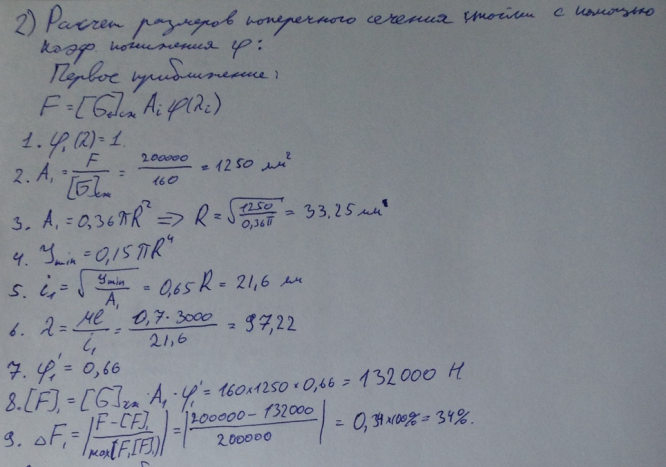 2) Расчет размеров поперечного сечения стойки с помощью
коэф. понижения φ:
Первое приближение:
F = [σ]сж Ai φ(λi)
1. φ₁(λ) = 1.
2. A₁ = F/[σ]сж = 200000/160 = 1250 мм²
3. A₁ = 0,36πR² ⟹ R = √(1250/0,36π) = 33,25 мм
4. Ymin = 0,15πR⁴
5. i₁ = √(Ymin/A₁) = 0,65R = 21,6 мм
6. λ = μl/i₁ = 0,7·3000/21,6 = 97,22
7. φ₁' = 0,66
8. [F]₁ = [σ]сж · A₁ · φ₁' = 160×1250×0,66 = 132000 Н
9. ΔF₁ = |F-[F]₁/max(F,[F]₁)| = |200000-132000/200000| = 0,34×100% = 34%.